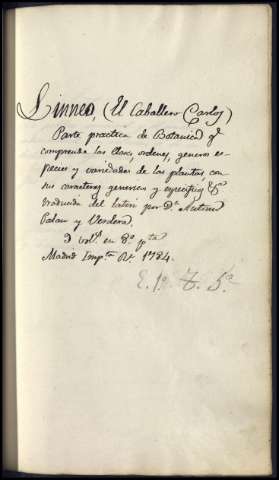 Linneo, (El Caballero Carlos)
Parte practica de Botanica q.e
comprende las clases, ordenes, generos es-
pecies y variedades de las plantas con
sus caracteres genericos y especificos &.a
traducida del latin por D.n Antonio
Palau y Verdera.
9 vol.s en 8.o pta
Madrid Imp.ta Rl. 1784.
E. 1.o T. 5.a